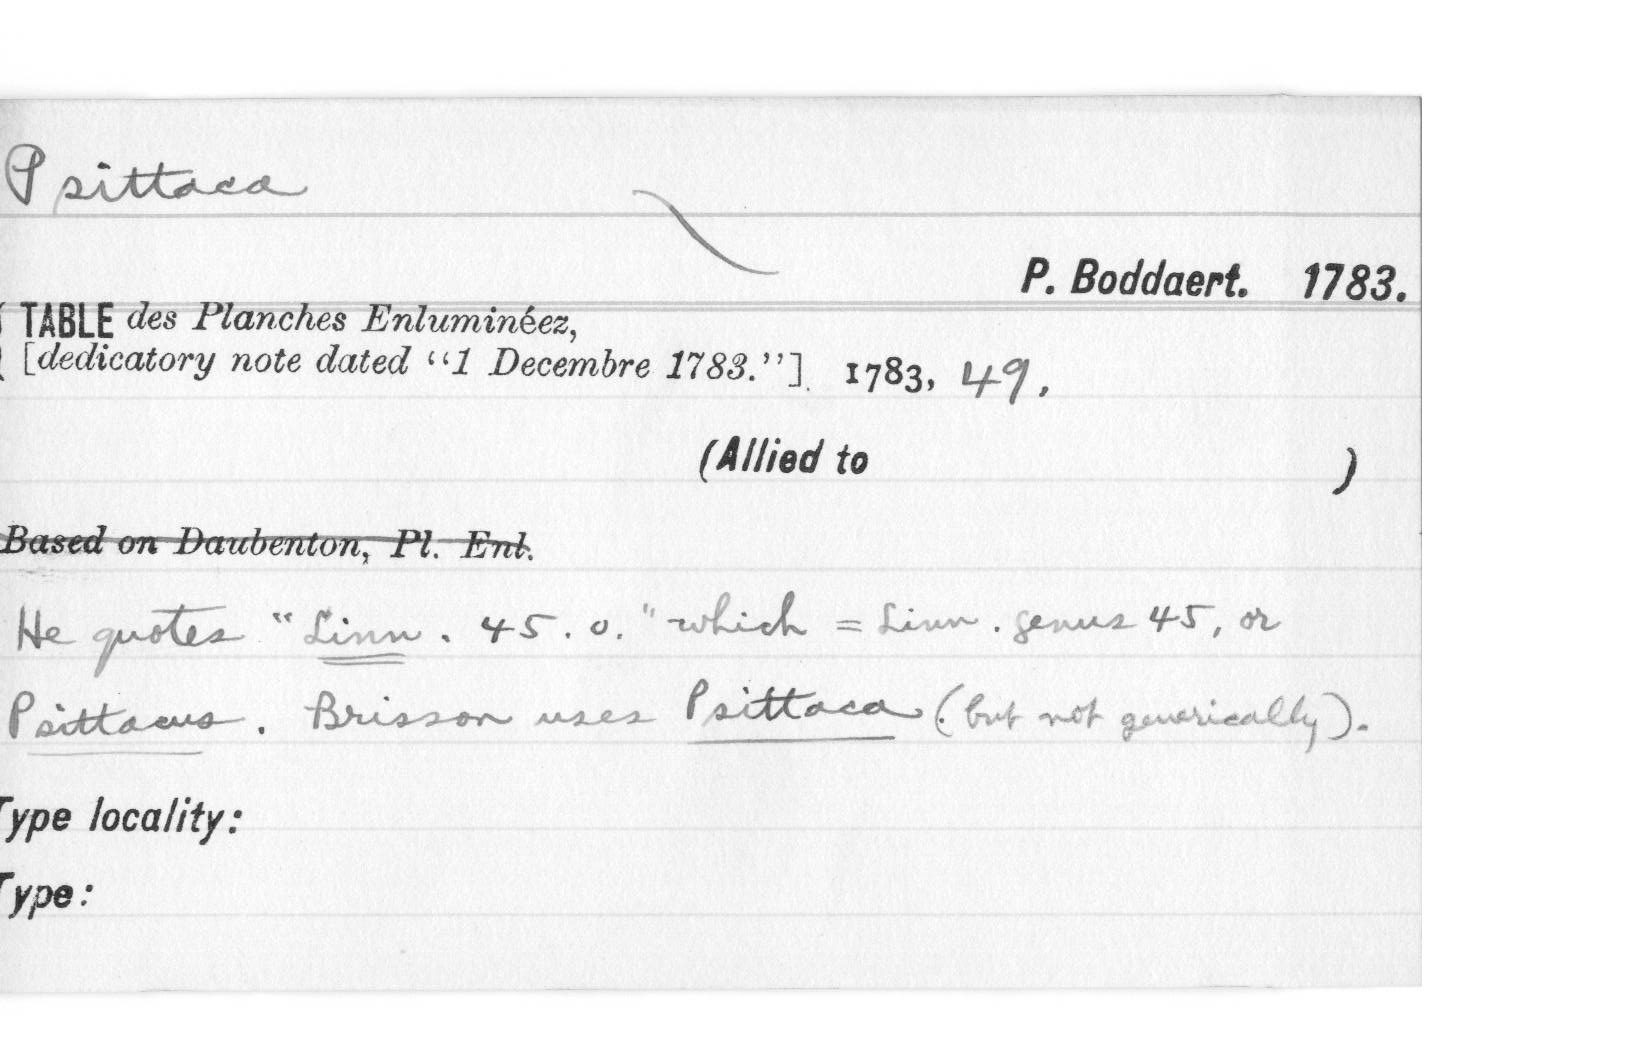 Psittaca
P. Boddaert. 1783.
TABLE des Planches Enluminéez,
[dedicatory note dated “1 Decembre 1783.”]. 1783, 49.
(Allied to )
Based on Daubenton, Pl. Enl.
He quotes "Linn. 45. o." which = Linn. genus 45, or
Psittacus. Brisson uses Psittaca (but not generically).
Type locality:
Type: